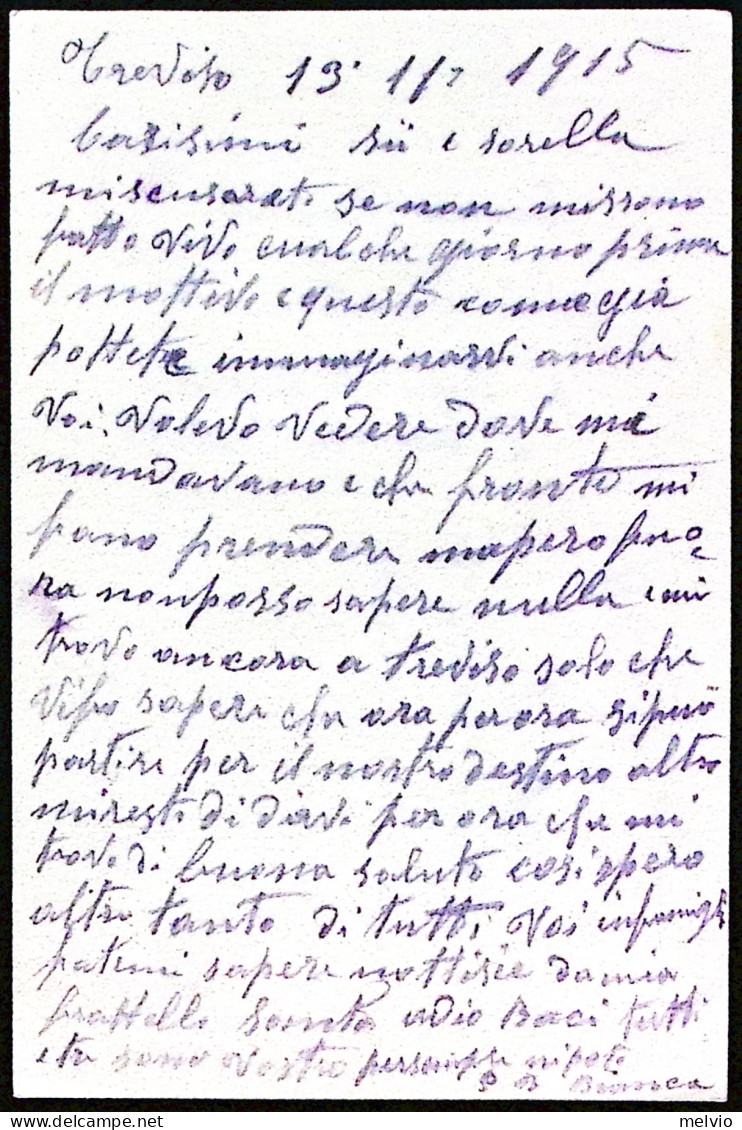 Treviso 13 11/7 1915
Carisimi sii e sorella
miscusarete se non missono
fatto vivo cualche giorno prima
il mottivo e questo come gia
pottete immaginarvi anche
voi. Volevo vedere dove mi
mandavano e che fronte mi
fano prendere mapero fino-
ra nonposso sapere nulla e mi
trovo ancora a treviso solo che
Vifo sapere che ora per ora sipuo
partire per il nostro destino altro
miresti di dirvi per ora che mi
trovo di buona salute cosi spero
altre tanto di tutti Voi infamigli
fatemi sapere nottisie da mia
frattello Santo adio Baci tutti
e te sono vostro nipote
B Bianca
melvio